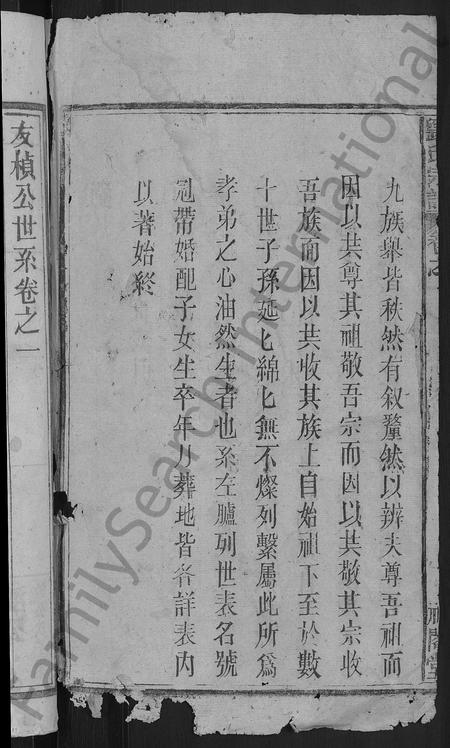 九族舉皆秩然有叙釐然以辨夫尊吾祖而
因以共尊其祖敬吾宗而因以共敬其宗收
吾族而因以共收其族上自始祖下至於數
十世子孫延匕綿匕無不燦列繫屬此所為
孝弟之心油然生者也系左臚列世表名號
冠帶婚配子女生卒年月葬地皆各詳表内
以著始終
友楨公世系卷之一
FamilySearch International